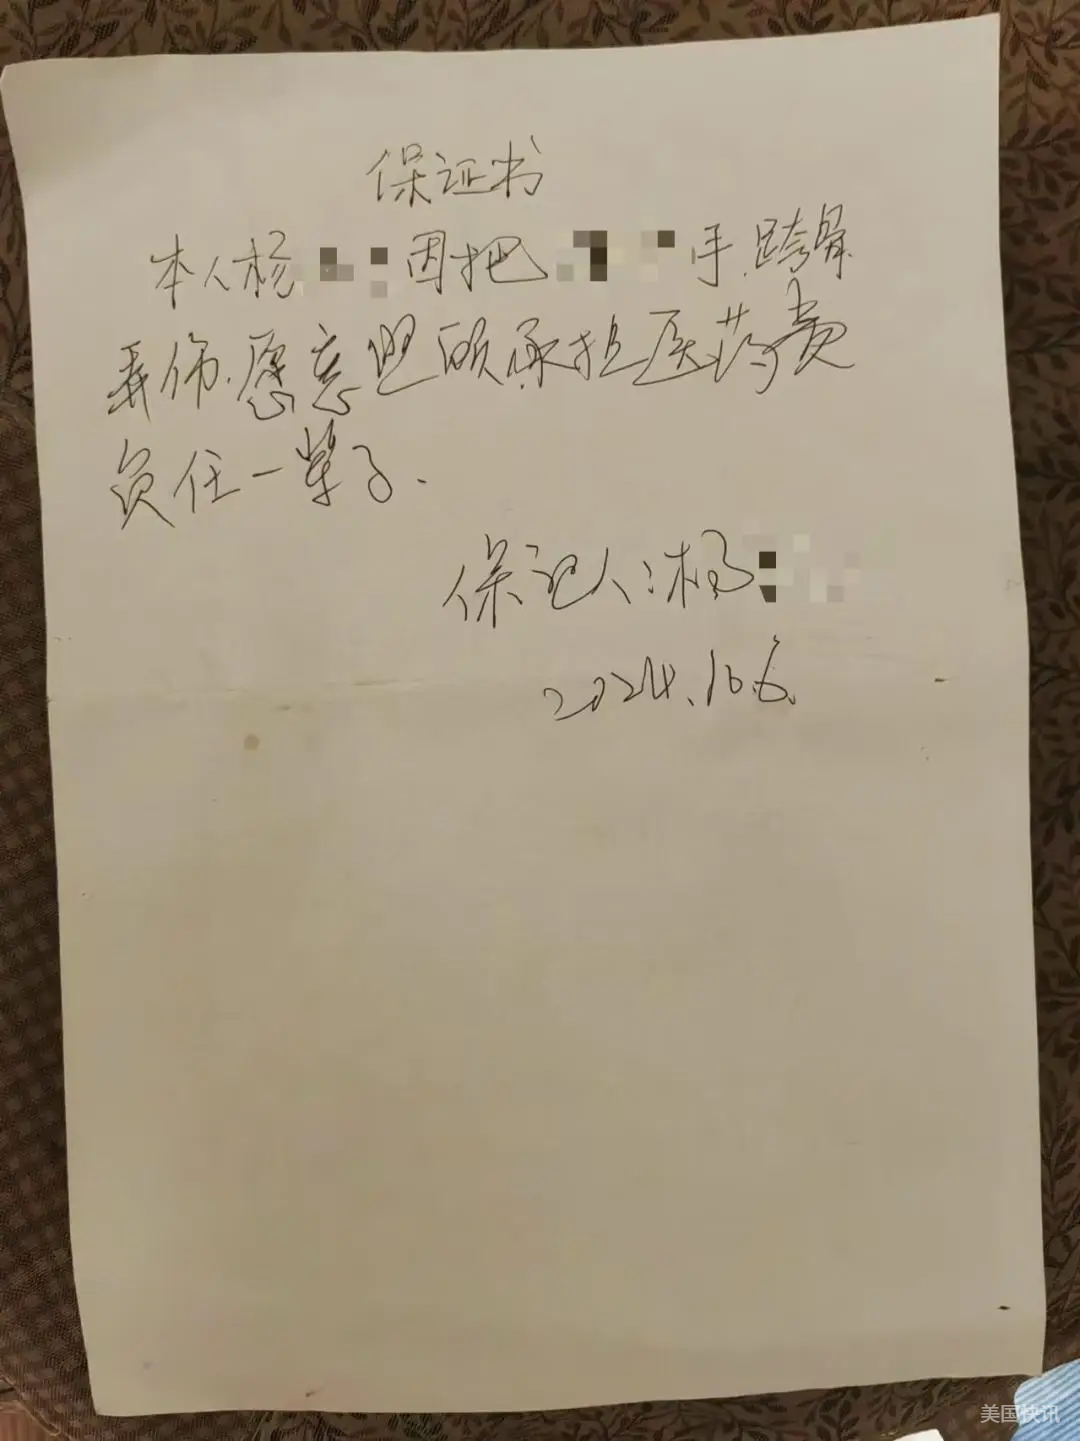 保证书
本人杨 因把 手.跨骨
弄伤.愿意照顾承担医药费
负任一辈子.
保证人:杨
2024.10.6.
美国快讯